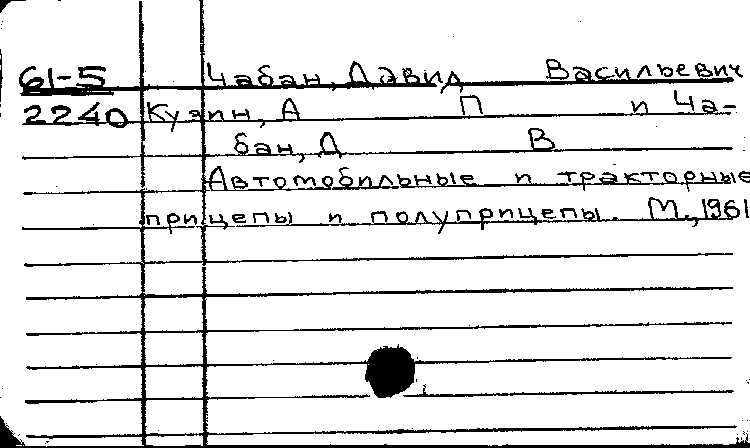 61-5 Чабан, Давид Васильевич
2240 Кузин, А П и Ча-
бан, Д В
Автомобильные и тракторные
прицепы и полуприцепы. М., 1961